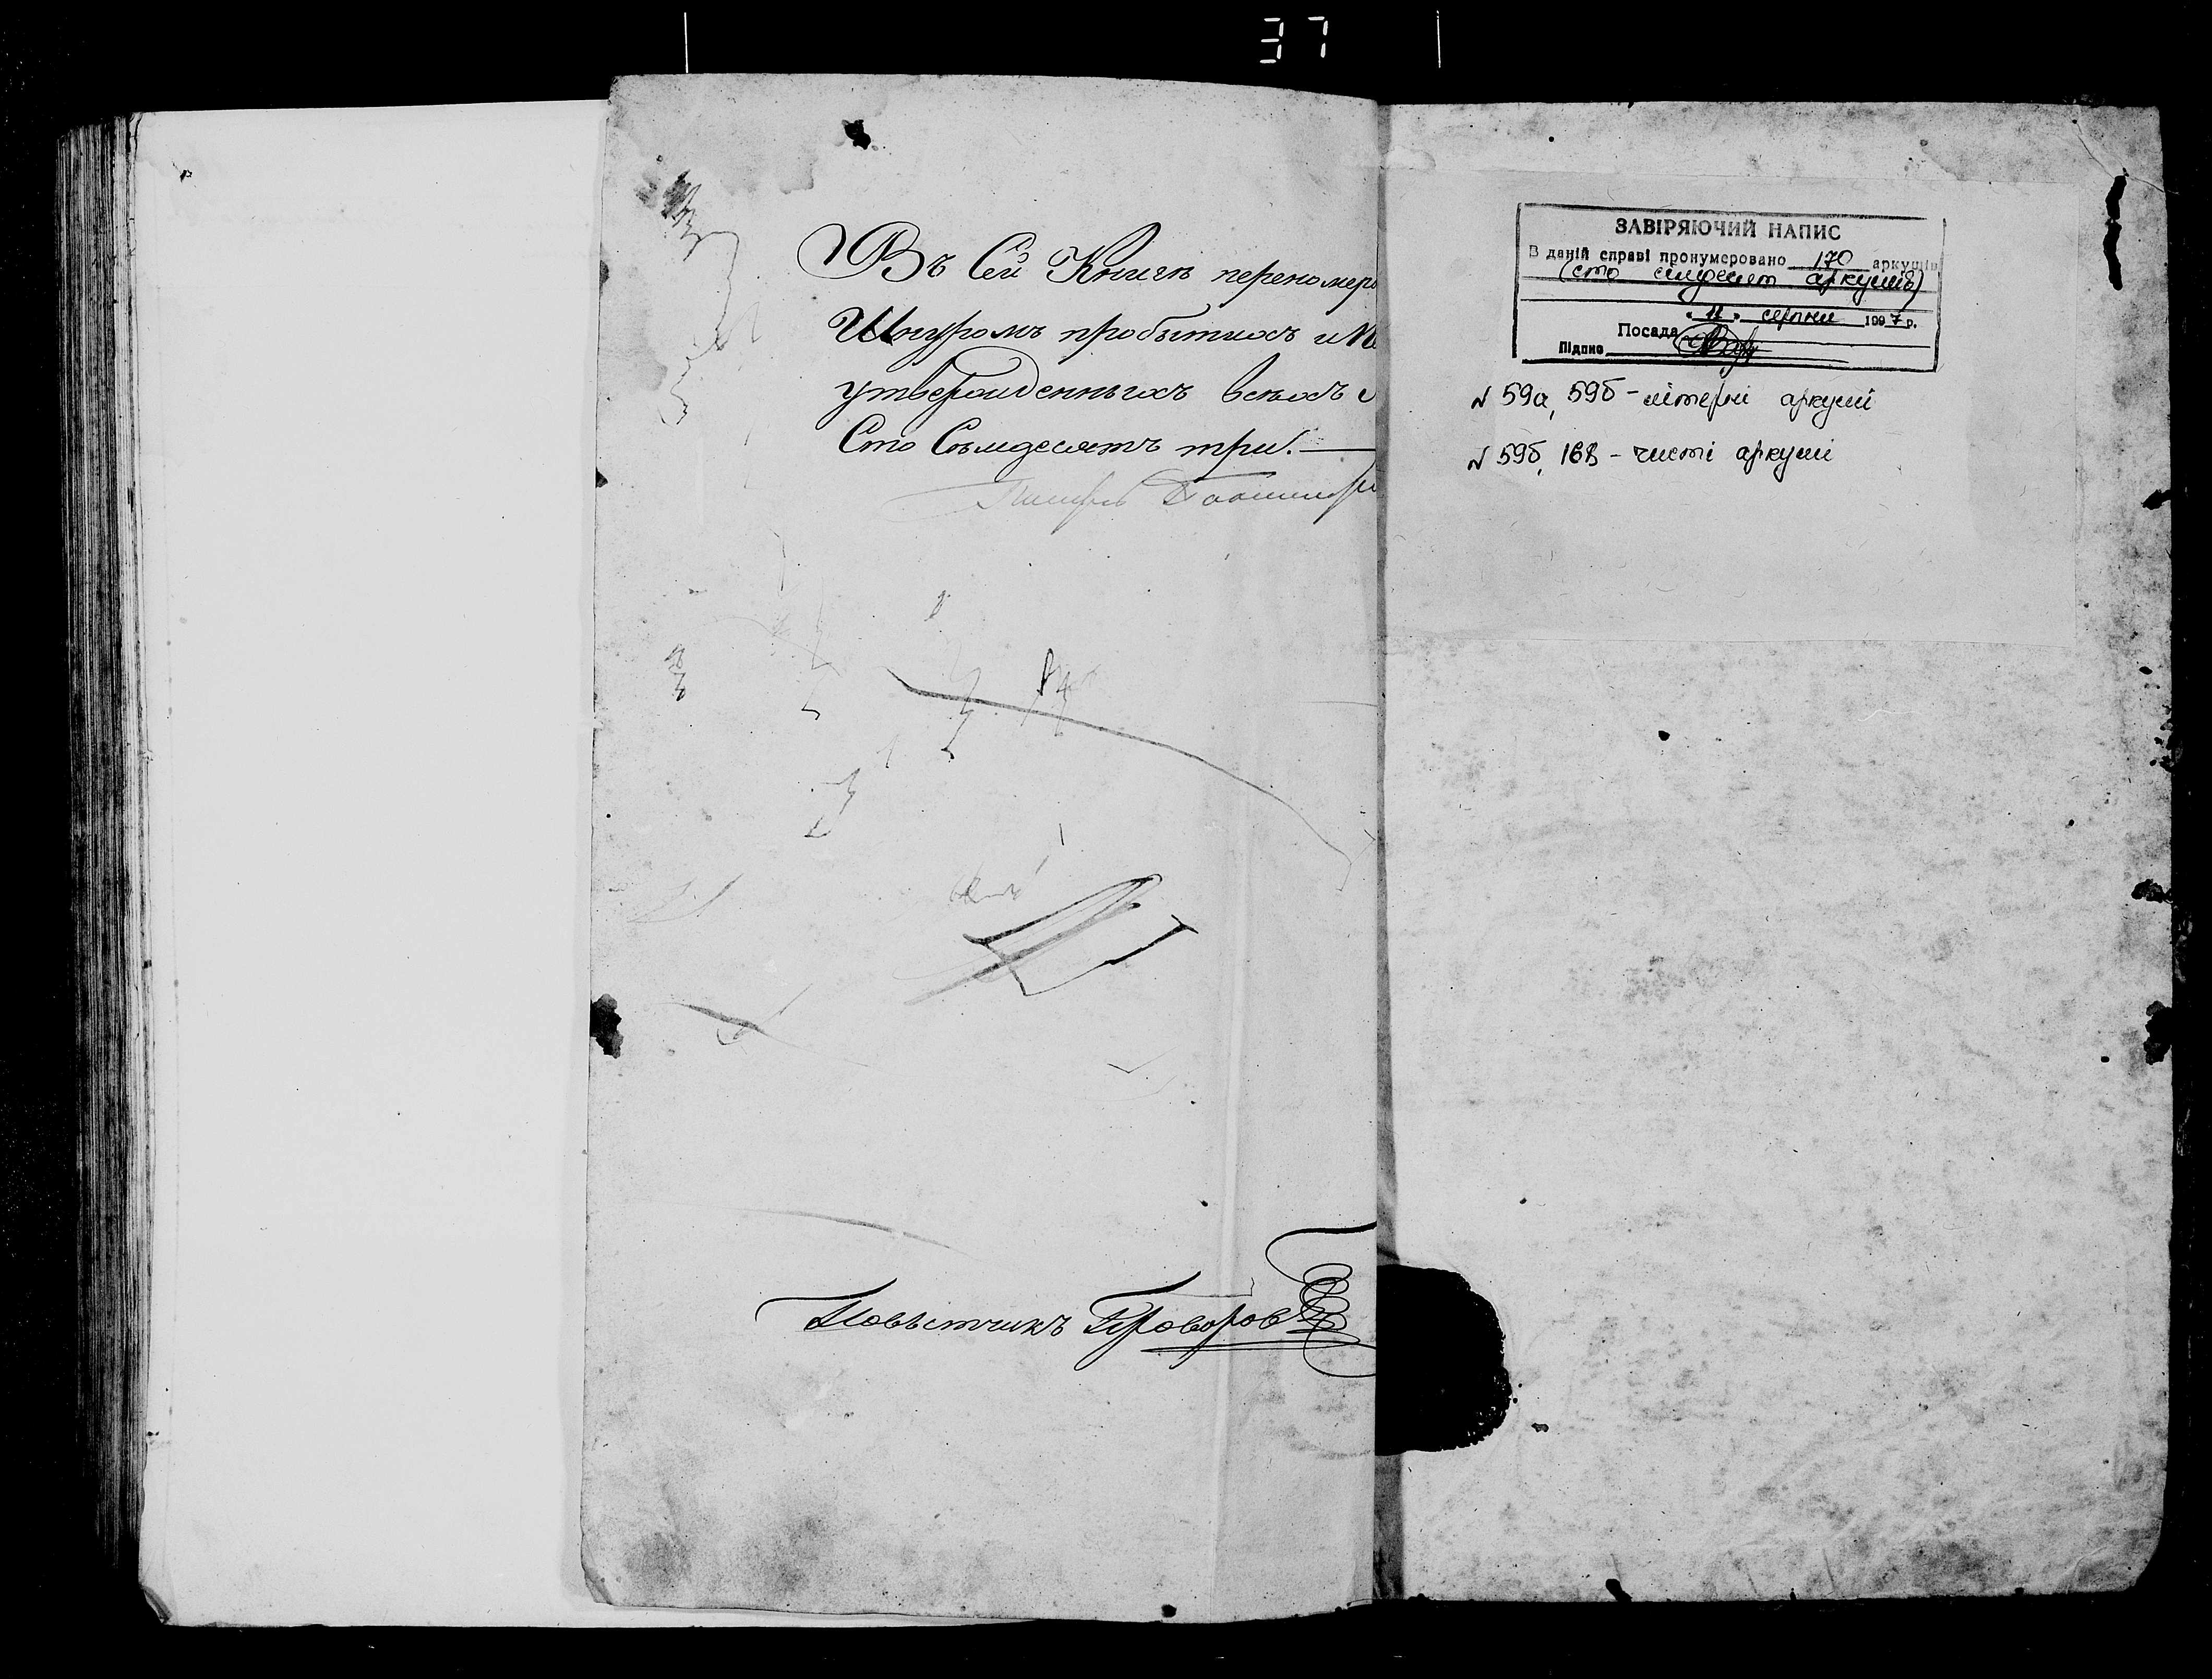 37
Въ Сей Книгѣ переномеро
Шнуромъ пробитыхъ и
утвержденныхъ всѣхъ
Сто Семдесятъ три.
Повѣтчикъ
ЗАВІРЯЮЧИЙ НАПИС
В даній справі пронумеровано 170 аркушів
(сто сімдесят аркушів)
" 11 " серпня 1997 р.
Посада
Підпис
N 59а, 59б - літерні аркуші
N 59б, 168 - чисті аркуші